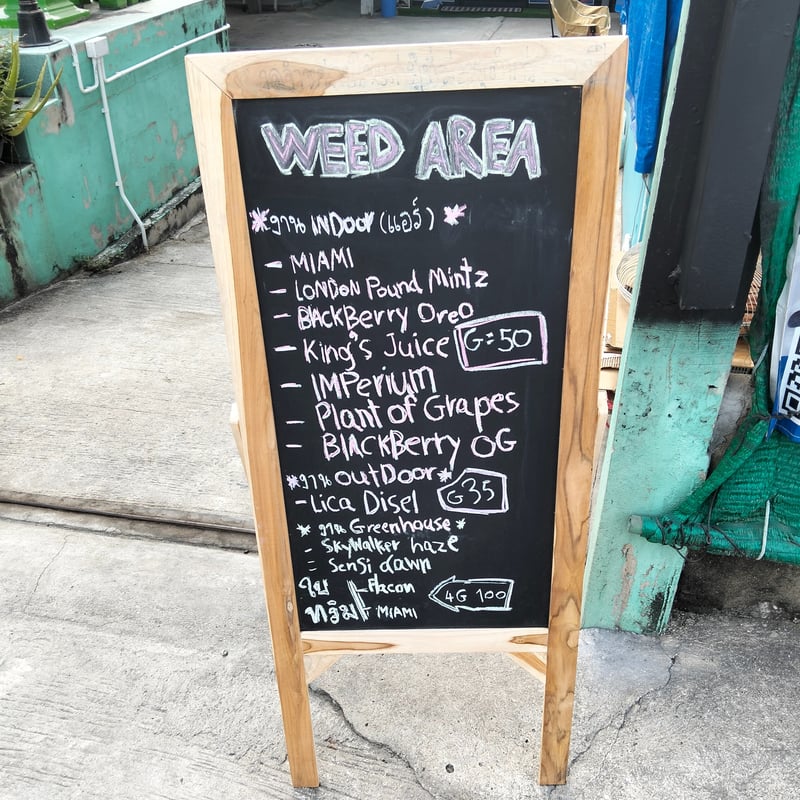 WEED AREA
*งาน INDoor (แอร์) *
- MIAMI
- LONDON Pound Mintz
- BLACKBerry Oreo
- King's Juice G=50
- IMPerium
- Plant of Grapes
- BLACKBerry OG
*งาน outDoor*
- Lica Disel G35
* งาน Greenhouse *
- Skywalker haze
- Sensi dawn
ใบ - Flacon 4G 100
ทริม - MIAMI